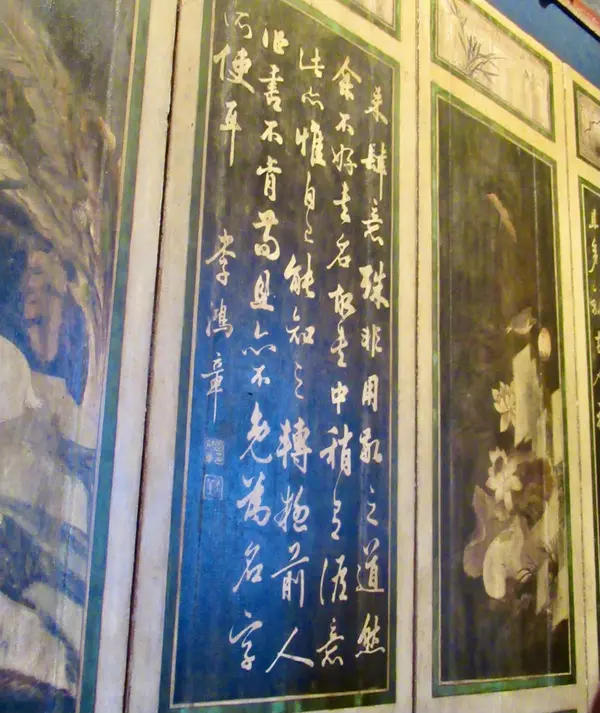 來肆意殊非用敬之道然
余不好書名故書中稍有淡意
此亦惟自己能知之轉想前人
作書不肯苟且亦不免為名字
所使耳
李鴻章